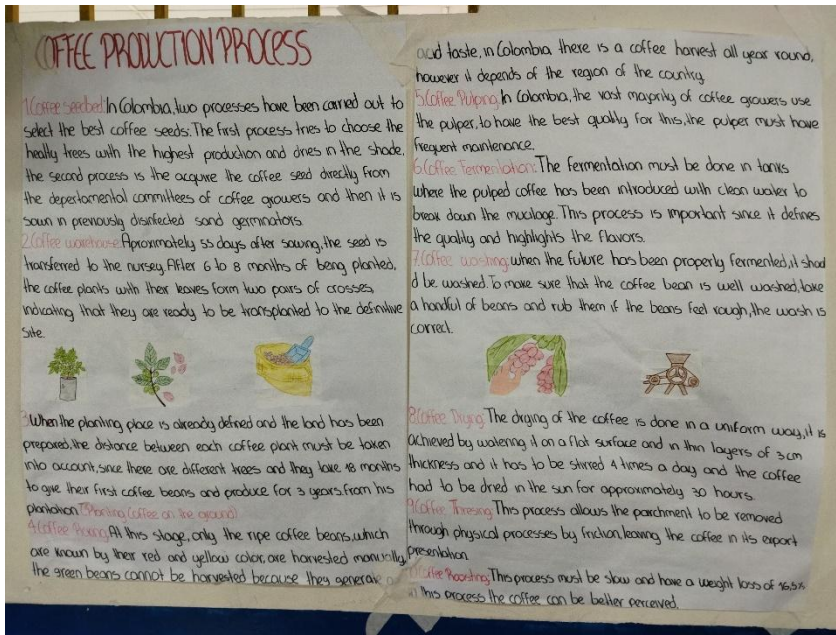 COFFEE PRODUCTION PROCESS
1.Coffee seedbed: In Colombia, two processes have been carried out to
select the best coffee seeds: The first process tries to choose the
healty trees with the highest production and dries in the shade,
the second process is the acquire the coffee seed directly from
the depertamental committees of coffee growers and then it is
sown in previously disinfected sand germinators.
2.Coffee warehouse: Aproximately 55 days after sowing, the seed is
transferred to the nursey. After 6 to 8 months of being planted,
the coffee plants with their leaves form two pairs of crosses,
indicating that they are ready to be transplanted to the definitive
site.
3 When the planting place is already defined and the land has been
prepared, the distance between each coffee plant must be taken
into account, since there are different trees and they take 18 months
to give their first coffee beans and produce for 3 years, from his
plantation. (Planting coffee on the ground)
4.Coffee At this stage, only the ripe coffee beans, which
are known by their red and yellow color, are harvested manually,
the green beans cannot be harvested because they generate
acid taste, in Colombia there is a coffee harvest all year round,
however it depends of the region of the country.
5.Coffee Pulping: In Colombia, the vast majority of coffee growers use
the pulper, to have the best quality for this, the pulper must have
frequent maintenance.
6.Coffee Fermentation: The fermentation must be done in tanks
where the pulped coffee has been introduced with clean water to
break down the mucilage. This process is important since it defines
the quality and highlights the flavors.
7.Coffee washing: when the future has been properly fermented, it shoul
d be washed. To make sure that the coffee bean is well washed, take
a handful of beans and rub them if the beans feel rough, the wash is
correct.
8.Coffee Drying: The drying of the coffee is done in a uniform way, it is
achieved by watering it on a flat surface and in thin layers of 3cm
thickness and it has to be stirred 4 times a day and the coffee
had to be dried in the sun for approximately 30 hours.
9.Coffee Thresing: This process allows the parchment to be removed
through physical processes by friction, leaving the coffee in its export
presentation.
Coffee Roasting: This process must be slow and have a weight loss of 16,5%
this process the coffee can be better perceived.